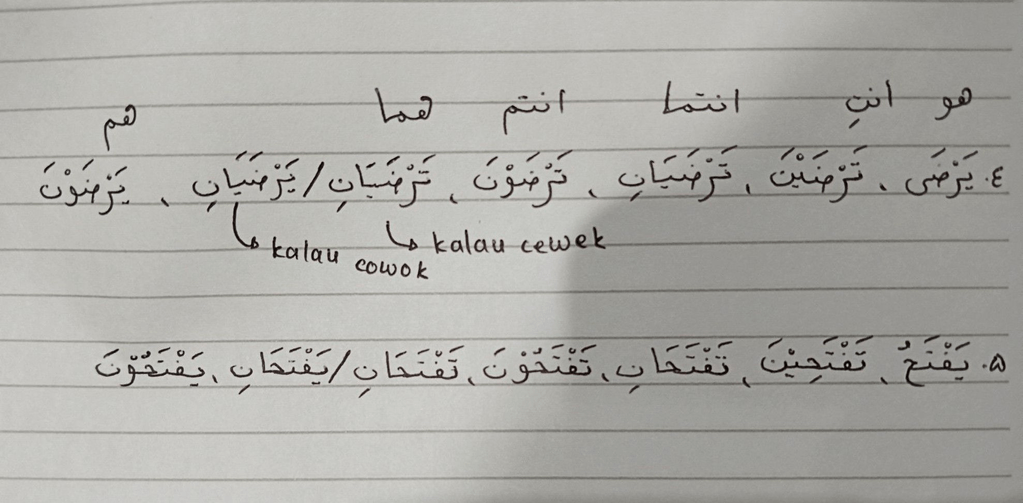 هو انتِ انتما انتم هما هم
٤. يَرْضَى ، تَرْضَيْنَ ، تَرْضَيَانِ ، تَرْضَوْنَ ، تَرْضَيَانِ / يَرْضَيَانِ ، يَرْضَوْنَ
kalau cowok kalau cewek
٥. يَفْتَحُ ، تَفْتَحِيْنَ ، تَفْتَحَانِ ، تَفْتَحُوْنَ ، تَفْتَحَانِ / يَفْتَحَانِ ، يَفْتَحُوْنَ